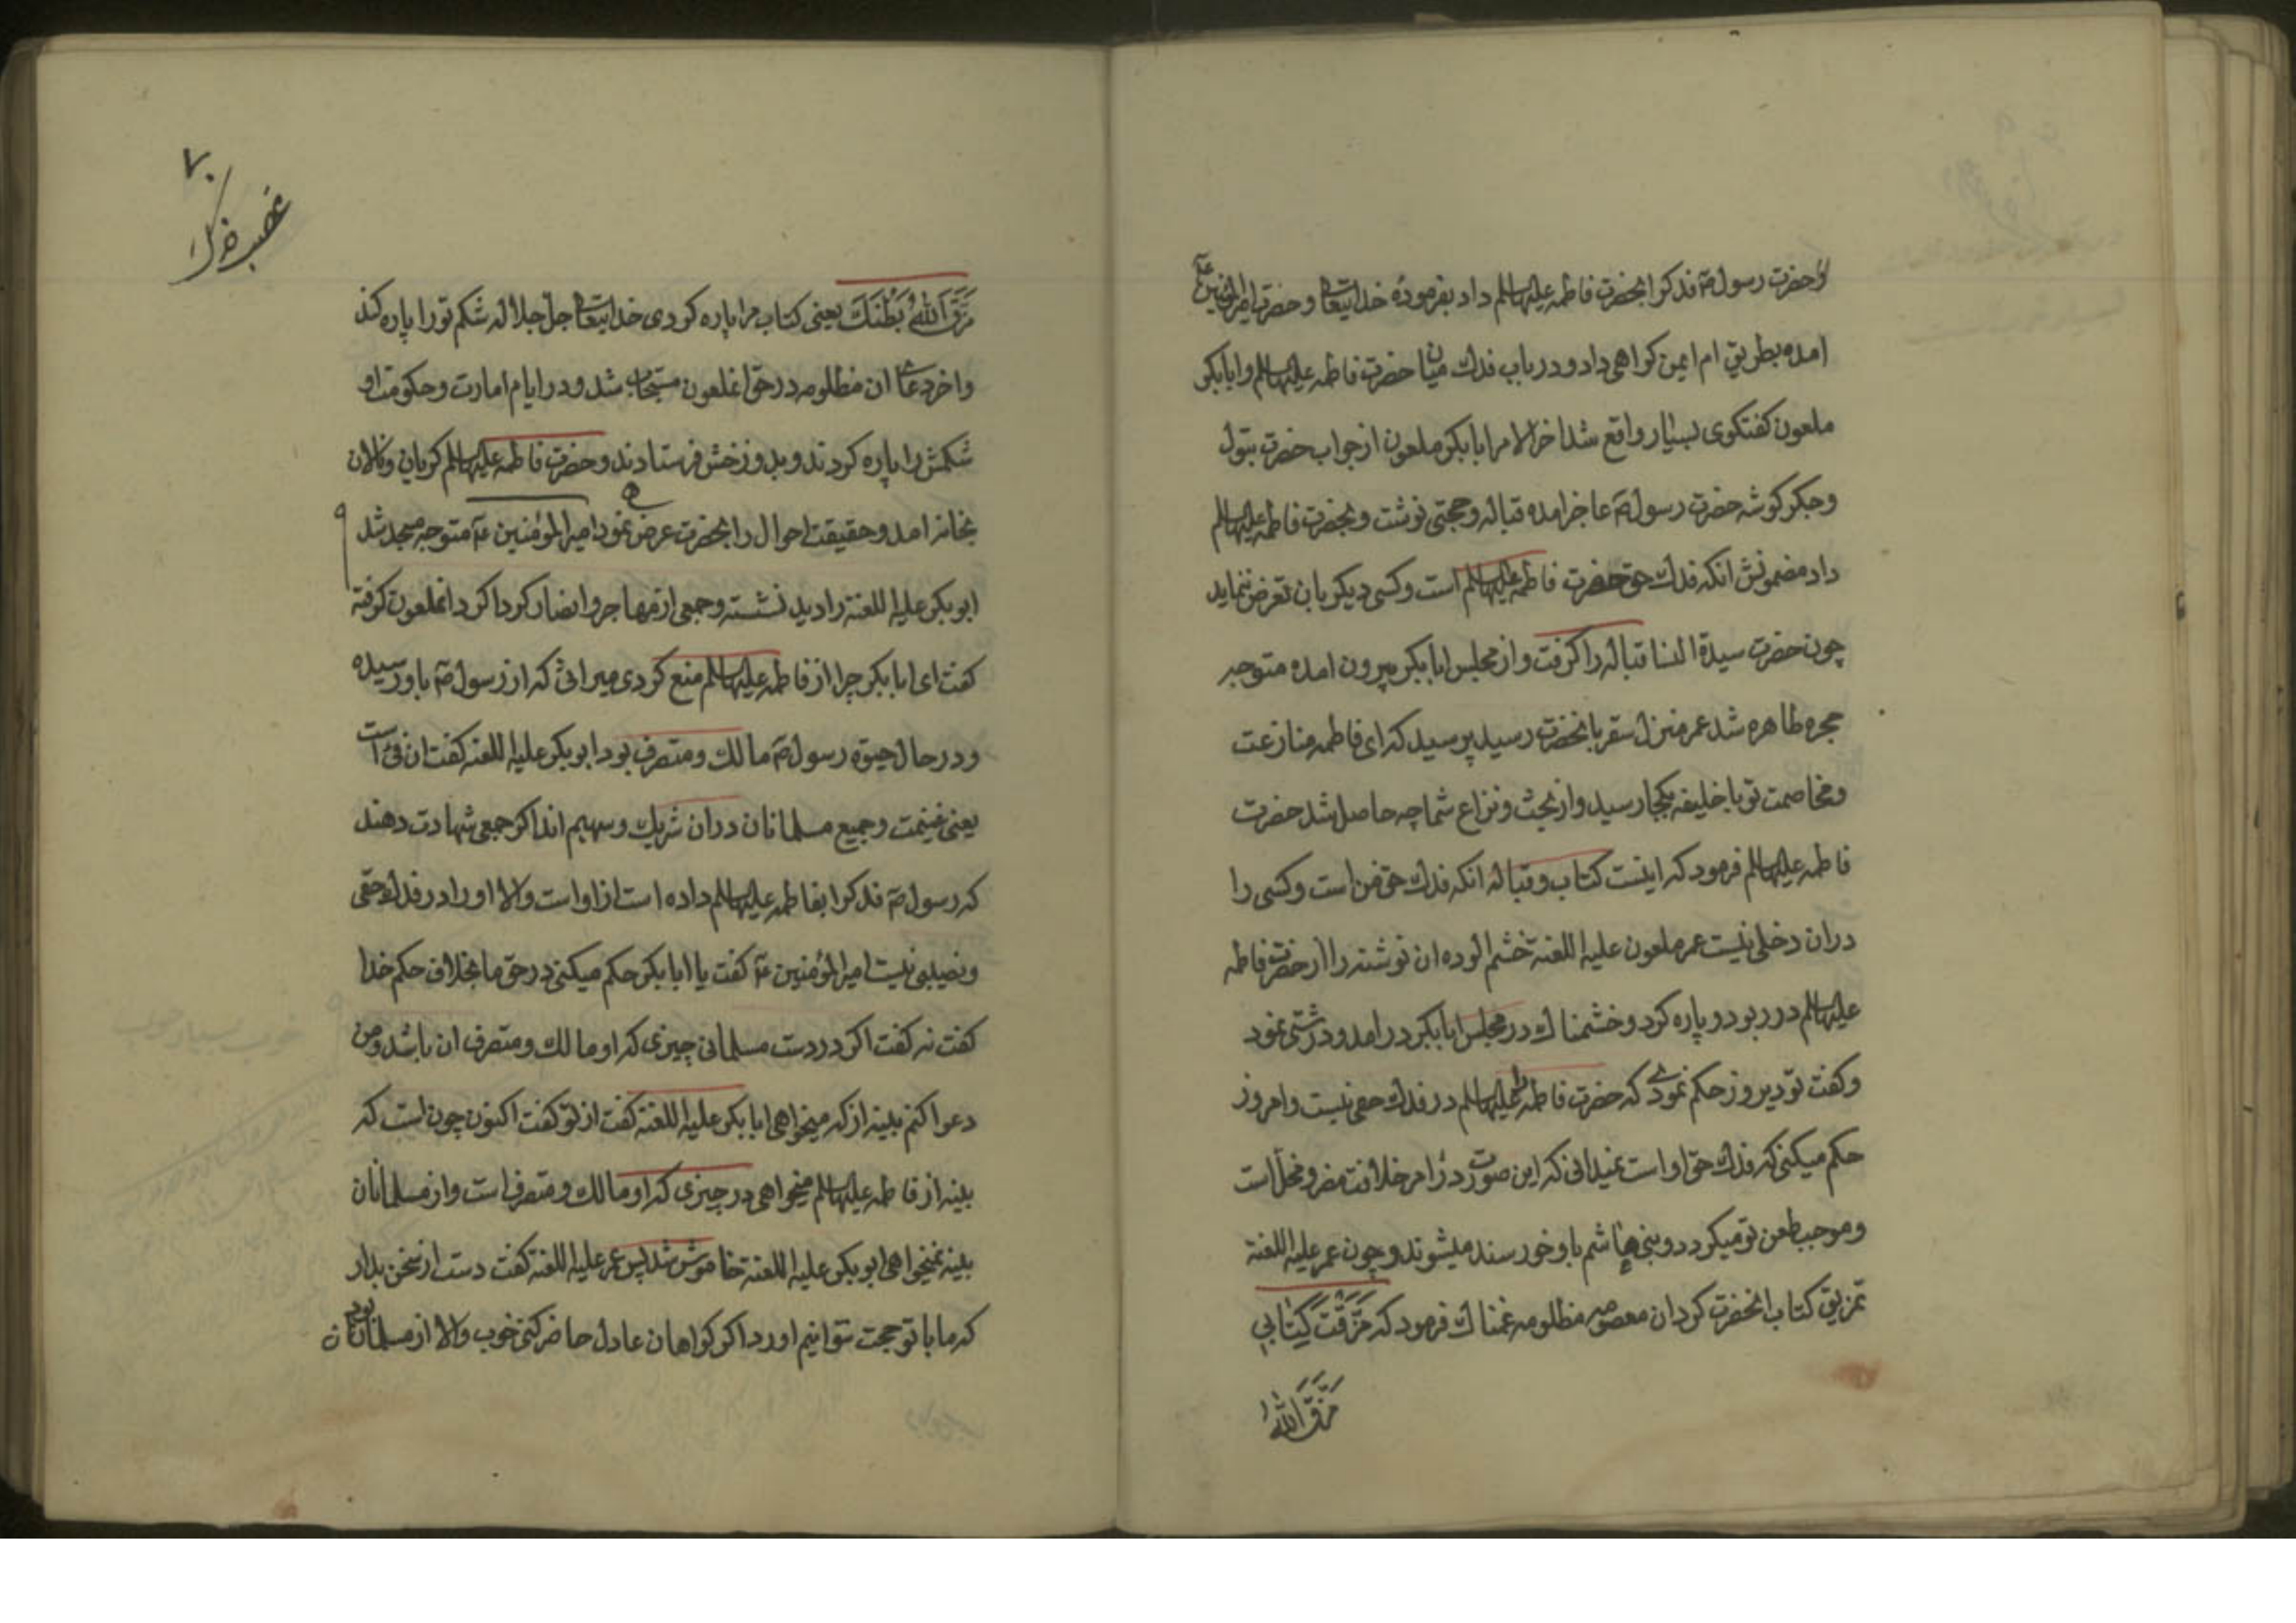 و حضرت رسول ص فدکرا بحضرت فاطمه علیهاالسلام داد بفرمودهٔ خدایتعالی و حضرت امیرالمؤمنین ع
امده بطریق ام ایمن کواهی داد و در باب فدک میان حضرت فاطمه علیهاالسلام و ابابکر
ملعون کفتکوی بسیار واقع شد اخر الامر ابابکر ملعون از جواب حضرت بتول
و جکر کوشه حضرت رسول ص عاجز امده قباله و حجتی نوشت و بحضرت فاطمه علیهاالسلام
داد مضمونش انکه فدک حق حضرت فاطمه علیهاالسلام است و کسی دیکر بان تعرض ننماید
چون حضرت سیدة النسا قباله را کرفت و از مجلس ابابکر بیرون امده متوجه
حجره طاهره شد عمر منزل سقر بانحضرت رسید پرسید که ای فاطمه منازعت
و مخاصمت تو با خلیفه بکجا رسید و از بحث و نزاع شما چه حاصل شد حضرت
فاطمه علیهاالسلام فرمود که اینست کتاب و قباله انکه فدک حق من است و کسی را
دران دخلی نیست عمر ملعون علیه اللعنة خشم الوده ان نوشته را از حضرت فاطمه
علیهاالسلام در ربود و پاره کرد و خشمناک در مجلس ابابکر در امد و درشتی نمود
و کفت تو دیروز حکم نمودی که حضرت فاطمه علیهاالسلام در فدک حقی نیست و امروز
حکم میکنی که فدک حق او است نمیدانی که این صورت در امر خلافت مضر و مخل است
و موجب طعن تو میکردد و بنی هاشم باو خورسند میشوند و چون عمر علیه اللعنة
تمزیق کتاب انحضرت کرد ان معصومه مظلومه غمناک فرمود که مَزَّقْتَ کِتَابِی
مَزَّقَ اللّٰهُ
۷۰
غصب فدک
مَزَّقَ اللّٰهُ بَطْنَكَ یعنی کتاب مرا پاره کردی خدایتعالی جل جلاله شکم تو را پاره کند
و اخر دعای ان مظلومه در حق انملعون مستجاب شد و در ایام امارت و حکومت او
شکمش را پاره کردند و بدوزخش فرستادند و حضرت فاطمه علیهاالسلام کریان و نالان
بخانه امد و حقیقت احوال را بحضرت عرض نمود امیرالمؤمنین ع متوجه مسجد شد
ابوبکر علیه اللعنة را دید نشسته و جمعی از مهاجر و انصار کرداکرد انملعون کرفته
کفت ای ابابکر چرا از فاطمه علیهاالسلام منع کردی میراثی که از رسول ص باو رسیده
و در حال حیوة رسول ص مالک و متصرف بود ابوبکر علیه اللعنه کفت ان فئ است
یعنی غنیمت و جمیع مسلمانان دران شریک و سهیم اند اکر جمعی شهادت دهند
که رسول ص فدکرا بفاطمه علیهاالسلام داده است ازاو است و الا او را در فدک حقی
و نصیبی نیست امیرالمؤمنین ع کفت یا ابابکر حکم میکنی در حق ما بخلاف حکم خدا
کفت نه کفت اکر در دست مسلمانی چیزی که او مالک و متصرف ان باشد و من
دعوا کنم بینه از که میخواهی ابابکر علیه اللعنة کفت از تو کفت اکنون چون است که
بینه از فاطمه علیهاالسلام میخواهی در چیزی که او مالک و متصرف است و از مسلمانان
بینه نمیخواهی ابوبکر علیه اللعنة خاموش شد پس عمر علیه اللعنه کفت دست از سخن بدار
که ما با تو حجت نتوانیم اورد اکر کواهان عادل حاضر کنی خوب و الا از مسلمانان